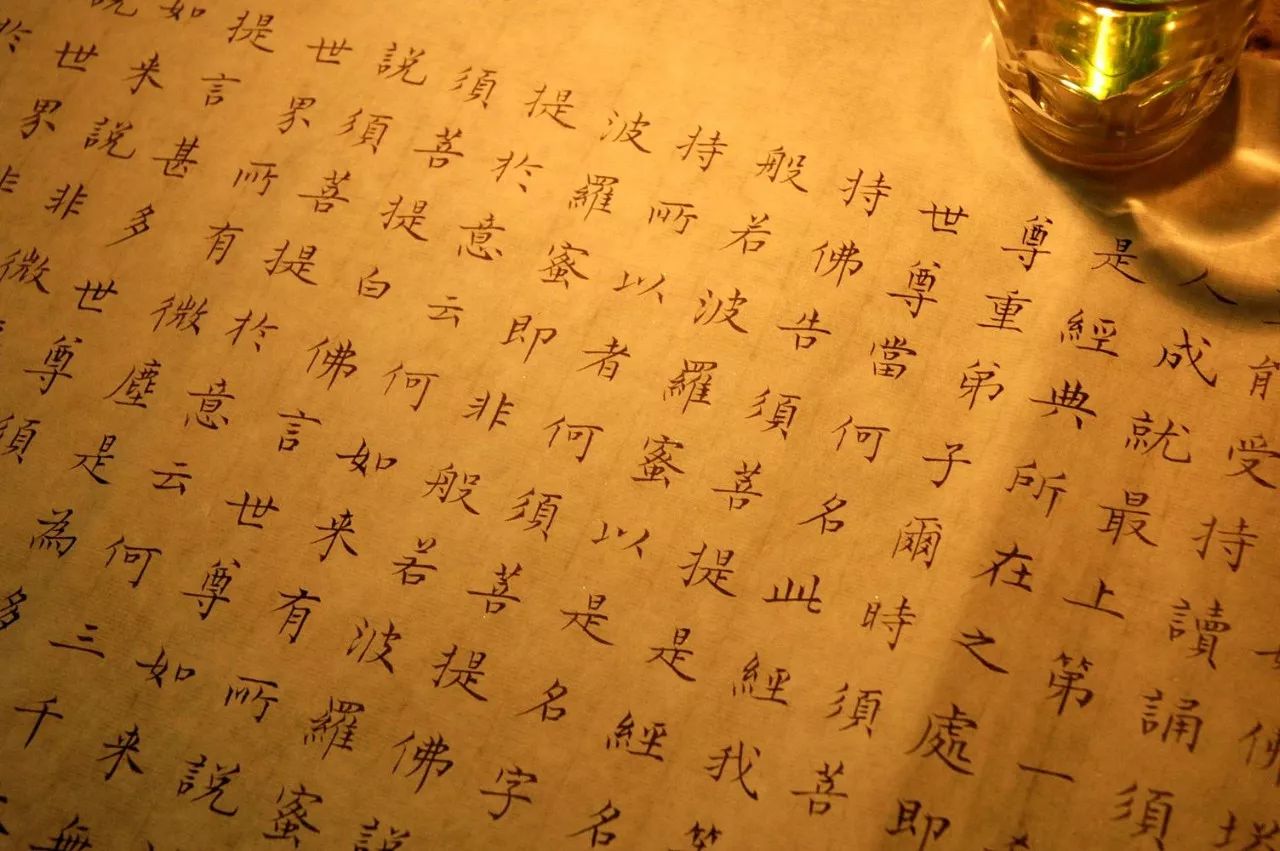 佛塔
能受持讀誦須
人成就最上第一
是經典所在之處即
尊重弟子爾時須菩
世尊當何名此經我等
持佛告須菩提是經名
般若波羅蜜以是名字
持所以者何須菩提佛說
波羅蜜即非般若波羅蜜
提於意云何如来有所說
須菩提白佛言世尊如来無
說須菩提於意云何三千
世界所有微塵是為多
提言甚多世尊須
如来說非微
說世界非
於